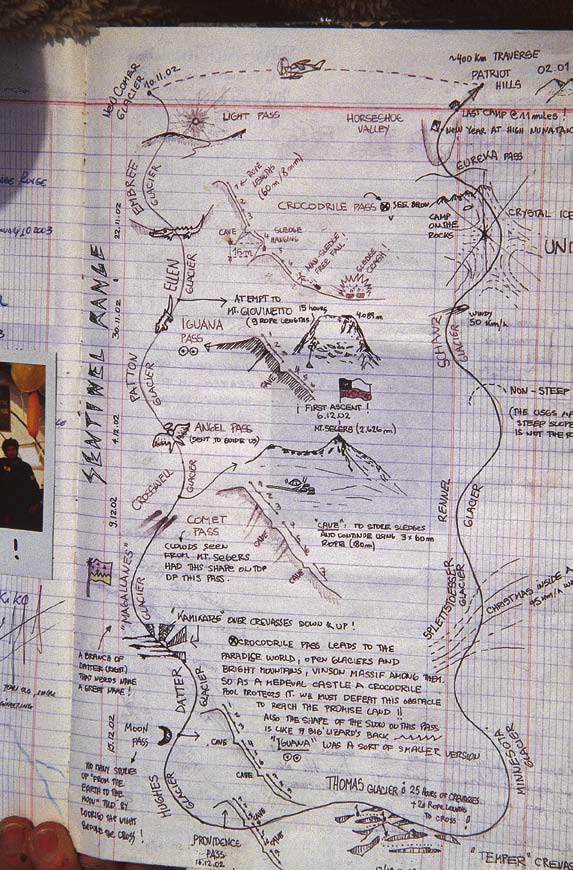 ~400 Km TRAVERSE
PATRIOT
HILLS
02.01
NEW COMAR
GLACIER
10.11.02
LAST CAMP @ 11 miles!
NEW YEAR AT HIGH NUNATAK
LIGHT PASS
HORSESHOE
VALLEY
EUREKA PASS
EMBREE
GLACIER
22.11.02
ROPE
LENGTHS
(60m/8mm)
CROCODILE PASS
SEE BELOW
CAMP
ON THE
ROCKS
CRYSTAL ICE
CAVE
15m
SLEDGE
HANGING
NON-SLEDGE
FREE FALL
SLEDGE
CRASH!
SENTINEL RANGE
ELLEN
GLACIER
30.11.02
ATTEMPT TO
MT. GIOVINETTO
15 hours
(9 ROPE LENGTHS)
4.089m
WINDY
50 Km/h
SCHANZ
GLACIER
IGUANA
PASS
CAVE
PATTON
GLACIER
NON-STEEP
(THE USGS MA
STEEP SLOPE
IS NOT THE R
FIRST ASCENT!
6.12.02
MT. SEGERS (2,626m)
4.12.02
ANGEL PASS
(SENT TO GUIDE US)
CROSSWELL
GLACIER
9.12.02
RENNEL
GLACIER
COMET
PASS
CLOUDS SEEN
FROM MT. SEGERS
HAD THIS SHAPE ON TOP
OF THIS PASS.
CAVE
CAVE
"CAVE": TO STORE SLEDGES
AND CONTINUE USING 3 x 60m
ROPE (180m)
"MAGALLANES"
GLACIER
SPLETTSTOESSER
GLACIER
CHRISTMAS INSIDE A
95 Km/h W
"KAMIKAZE" OVER CREVASSES DOWN & UP!
A BRANCH OF
DATTER (RIGHT)
THAT NEEDS
A GREAT NAME!
CROCODILE PASS LEADS TO THE
PARADISE WORLD, OPEN GLACIERS AND
BRIGHT MOUNTAINS, VINSON MASSIF AMONG THEM.
SO AS A MEDEVAL CASTLE A CROCODILE
POOL PROTECTS IT. WE MUST DEFEAT THIS OBSTACLE
TO REACH THE PROMISE LAND!!
ALSO THE SHAPE OF THE SLOPE ON THIS PASS
IS LIKE A BIG LIZARD'S BACK
"IGUANA" WAS A SORT OF SMALLER VERSION
DATTER
GLACIER
15.12.02
MOON
PASS
CAVE
CAVE
TOO MANY STORIES
OF "FROM THE
EARTH TO THE
MOON" TOLD BY
THE NIGHT
BEFORE THE CROSS!
HUGHES
GLACIER
MINNESOTA
GLACIER
THOMAS GLACIER
25 HOURS OF CREVASSES
+ 20 ROPE LENGTHS
TO CROSS!
CAVE
CAVE
PROVIDENCE
PASS
18.12.02
"TEMPER" CREVAS